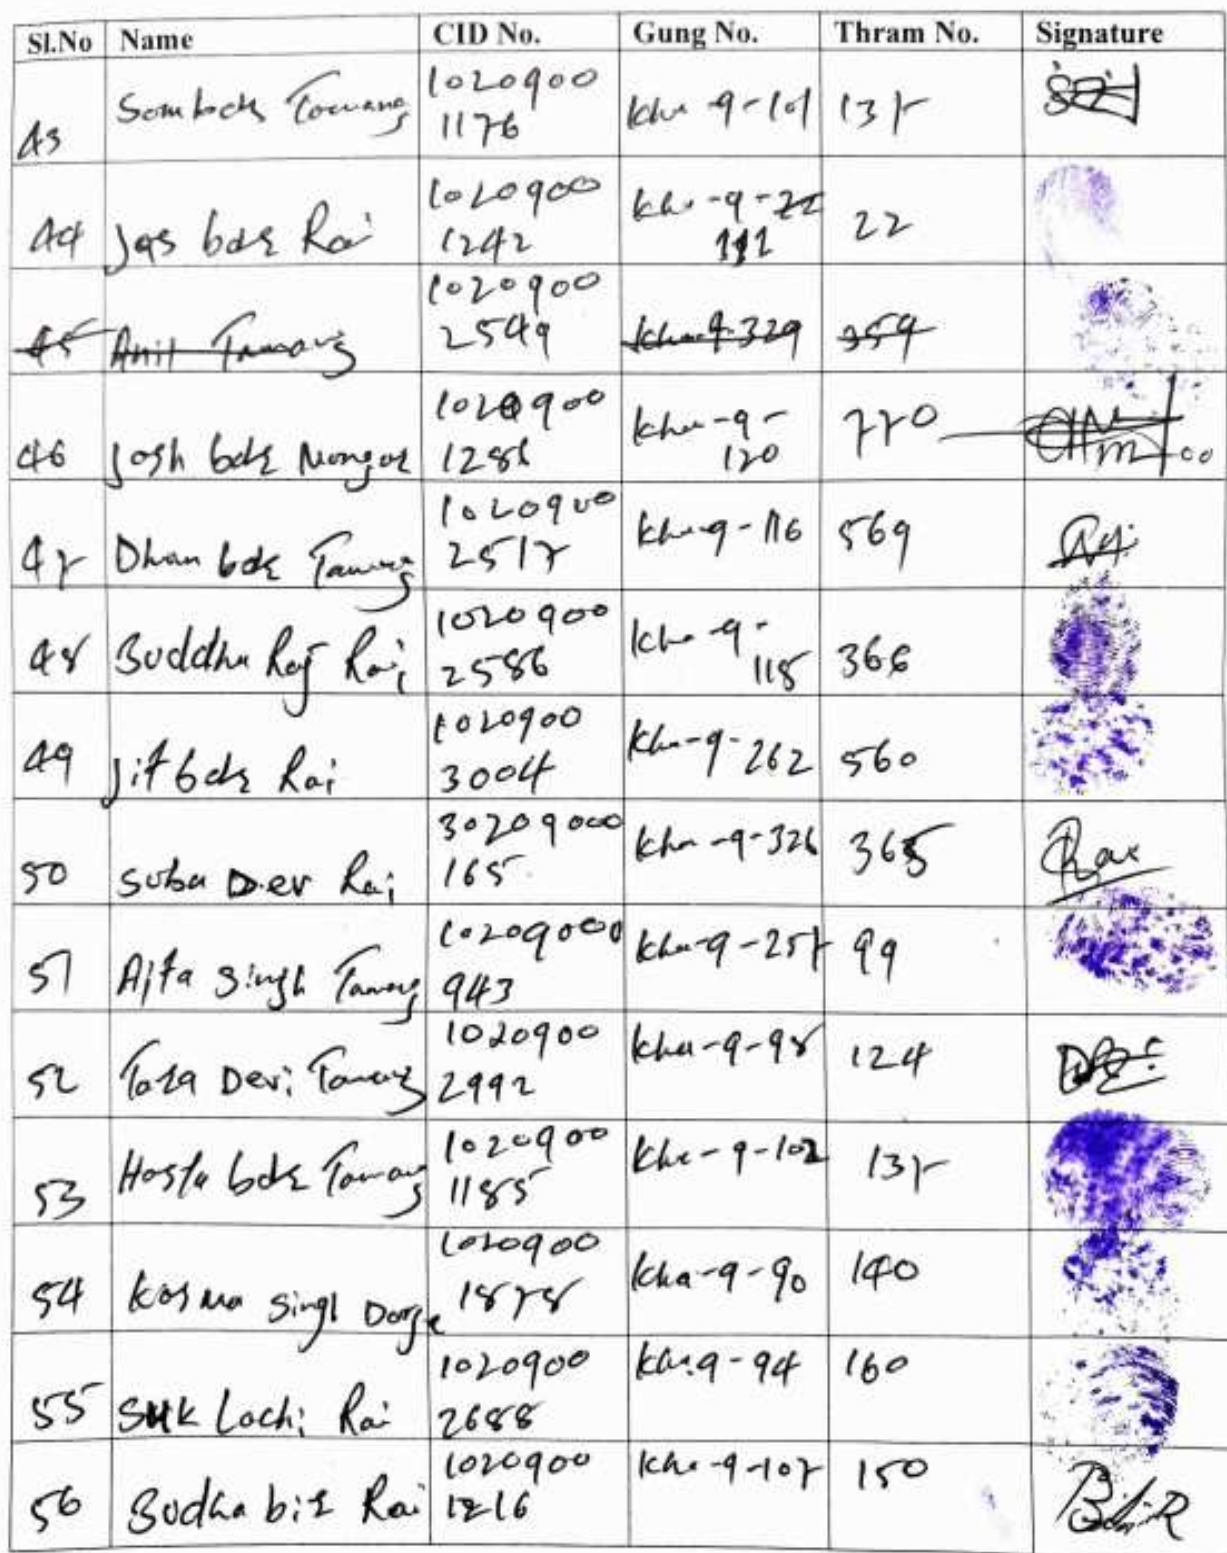 Sl.No Name CID No. Gung No. Thram No. Signature
43 Tamang 10209001176 Kha-9-101 137
44 Jas bdr Rai 10209001242 Kha-9-22 112 22
45 Anil Tamang 10209002549 Kha-9-329 359
46 Josh bdr Mongar 1020900 Kha-9-120 770
47 Dhan bdr Tamang 10209002517 Kha-9-116 569
48 Buddha Raj Rai 10209002586 Kha-9-118 366
49 Jit bdr Rai 10209003004 Kha-9-262 560
50 Suba Dev Rai 30209000165 Kha-9-326 365 Rai
51 Ajta Singh Tamang 10209000943 Kha-9-257 99
52 Tara Devi Tamang 10209002992 Kha-9-98 124
53 Hasta bdr Tamang 10209001185 Kha-9-102 137
54 Singh 10209001878 Kha-9-90 140
55 Suk Lachi Rai 10209002688 Kha-9-94 160
56 Budha bir Rai 10209001216 Kha-9-107 150